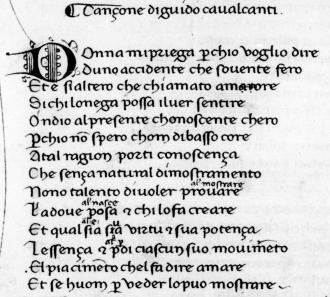 Cançone di guido cavalcanti.
Donna mi priega ꝑchio voglio dire
Duno accidente che sovente fero
Et e sialtero che chiamato amarore
Sichi lo nega possa il uer sentire
Ondio al presente chonoscente chero
ꝑchio nō spero chom di basso core
A tal ragion porti conoscença
Che sença natural dimostramento
al mostrare
Nono talento di uoler prouare
al nasce
La dove posa ⁊ chi lo fa creare
Et qual sia sua virtu ⁊ sua potença
Lessença ⁊ ꝑ di ciascun suo mouimēto
El piacimēto chel fa dire amare
Et se huom ꝑ veder lo puo mostrare.